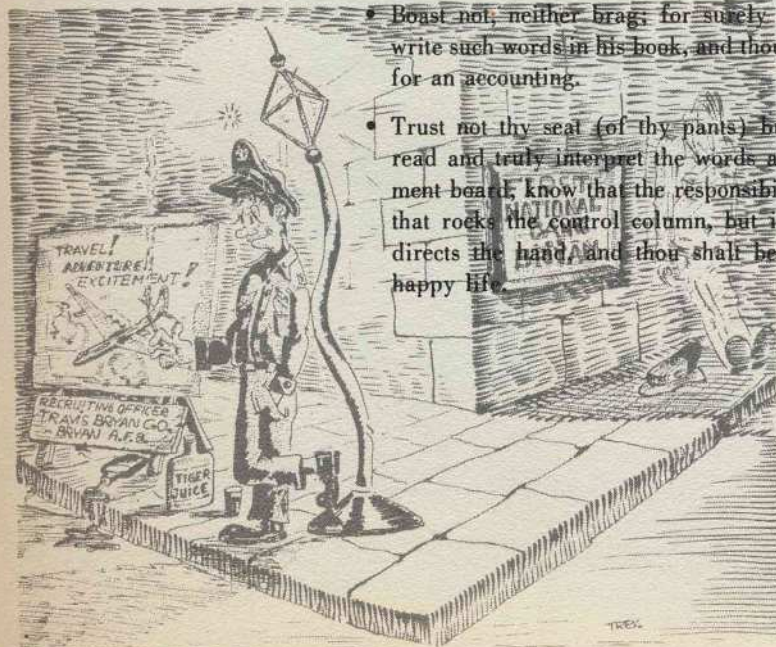 • Boast not; neither brag; for surely
write such words in his book, and thou
for an accounting.
• Trust not thy seat (of thy pants) b
read and truly interpret the words a
ment board, know that the responsib
that rocks the control column, but i
directs the hand, and thou shalt be
happy life.
TRAVEL!
ADVENTURE!
EXCITEMENT!
RECRUITING OFFICER
TRAVIS BRYAN CO.
BRYAN A.F.B.
TIGER
JUICE
FIRST
NATIONAL
BANK
BRYAN